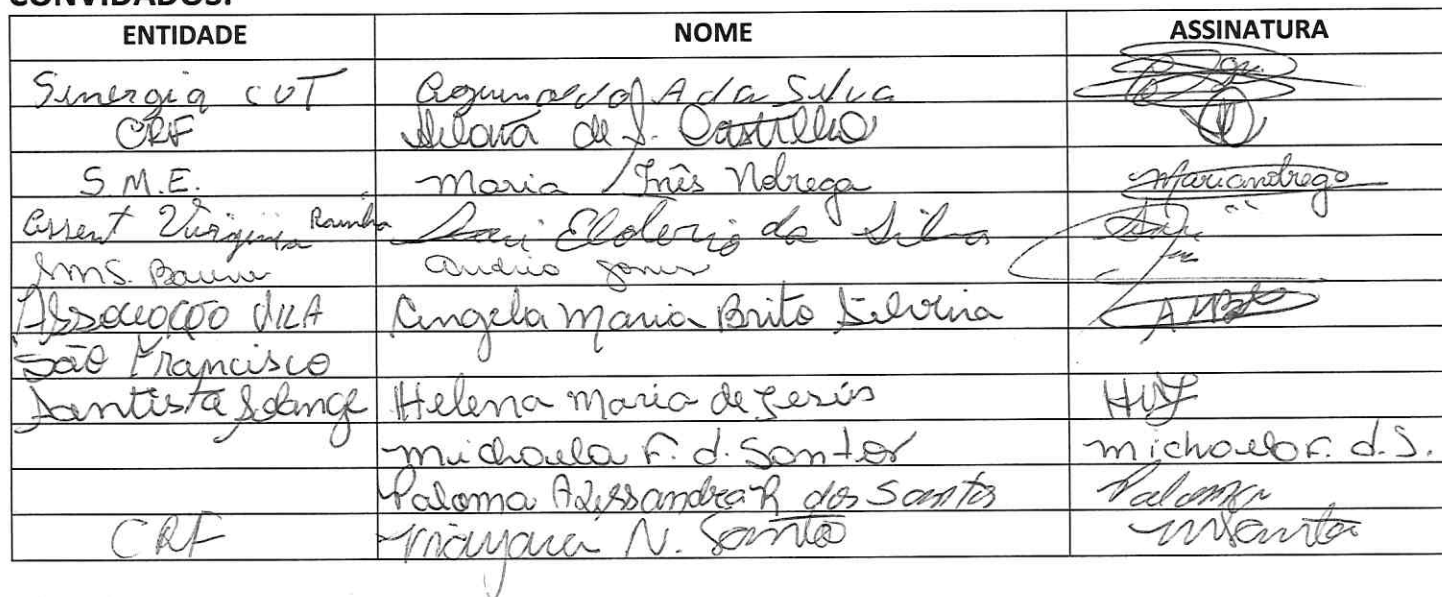 CONVIDADOS:
ENTIDADE NOME ASSINATURA
Sinergia CUT A da Silva
CRF de S. Castilho
S.M.E. Maria Inês Nobrega Mariandrega
Assent Virginia Rainha Eloterio da Silva
SMS. Bauru
Associação VILA Angela Maria Brito Silveira AMB
São Francisco
Santista Solange Helena Maria de Jesús HMJ
Michaela F. d. Santos Michaela F. d. S.
Paloma Alessandra R dos Santos Paloma
CRF Mayara N. Santos MSantos